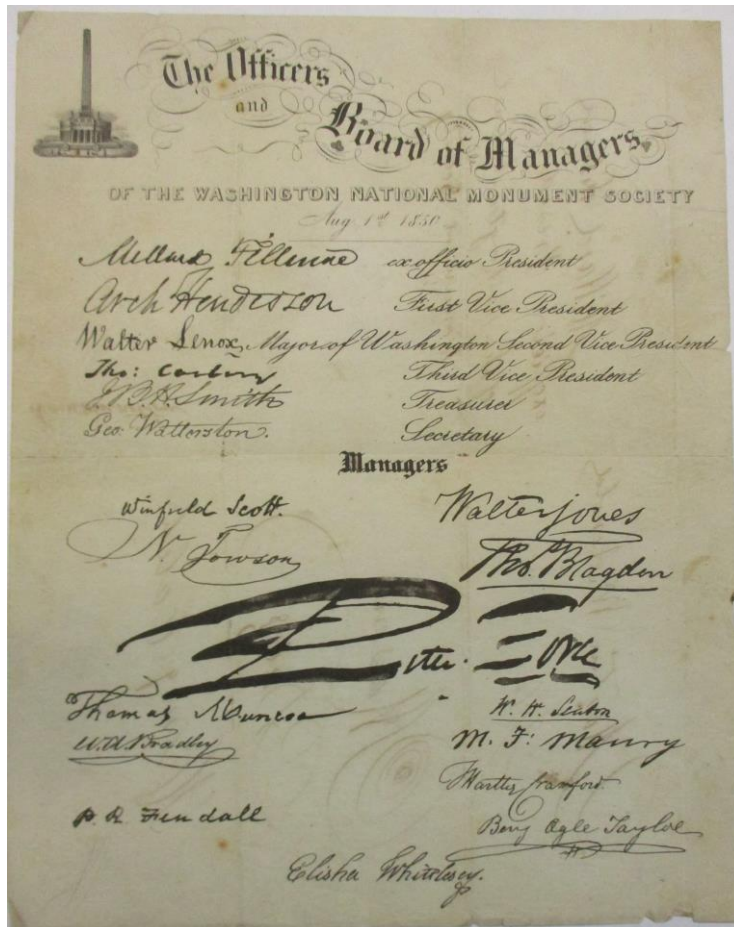 The Officers
and
Board of Managers
OF THE WASHINGTON NATIONAL MONUMENT SOCIETY
Aug. 1st 1850
Millard Fillmore ex officio President
Arch Henderson First Vice President
Walter Lenox, Major of Washington Second Vice President
Tho: Carbery Third Vice President
J. B. H. Smith Treasurer
Geo: Watterston. Secretary
Managers
Winfield Scott. Walter Jones
N. Towson Tho. Blagden
Peter Force
Thomas Munroe W. W. Seaton
W. A. Bradley M. F. Maury
P. R. Fendall Crawford
Benj Ogle Tayloe
Elisha Whittlesey.